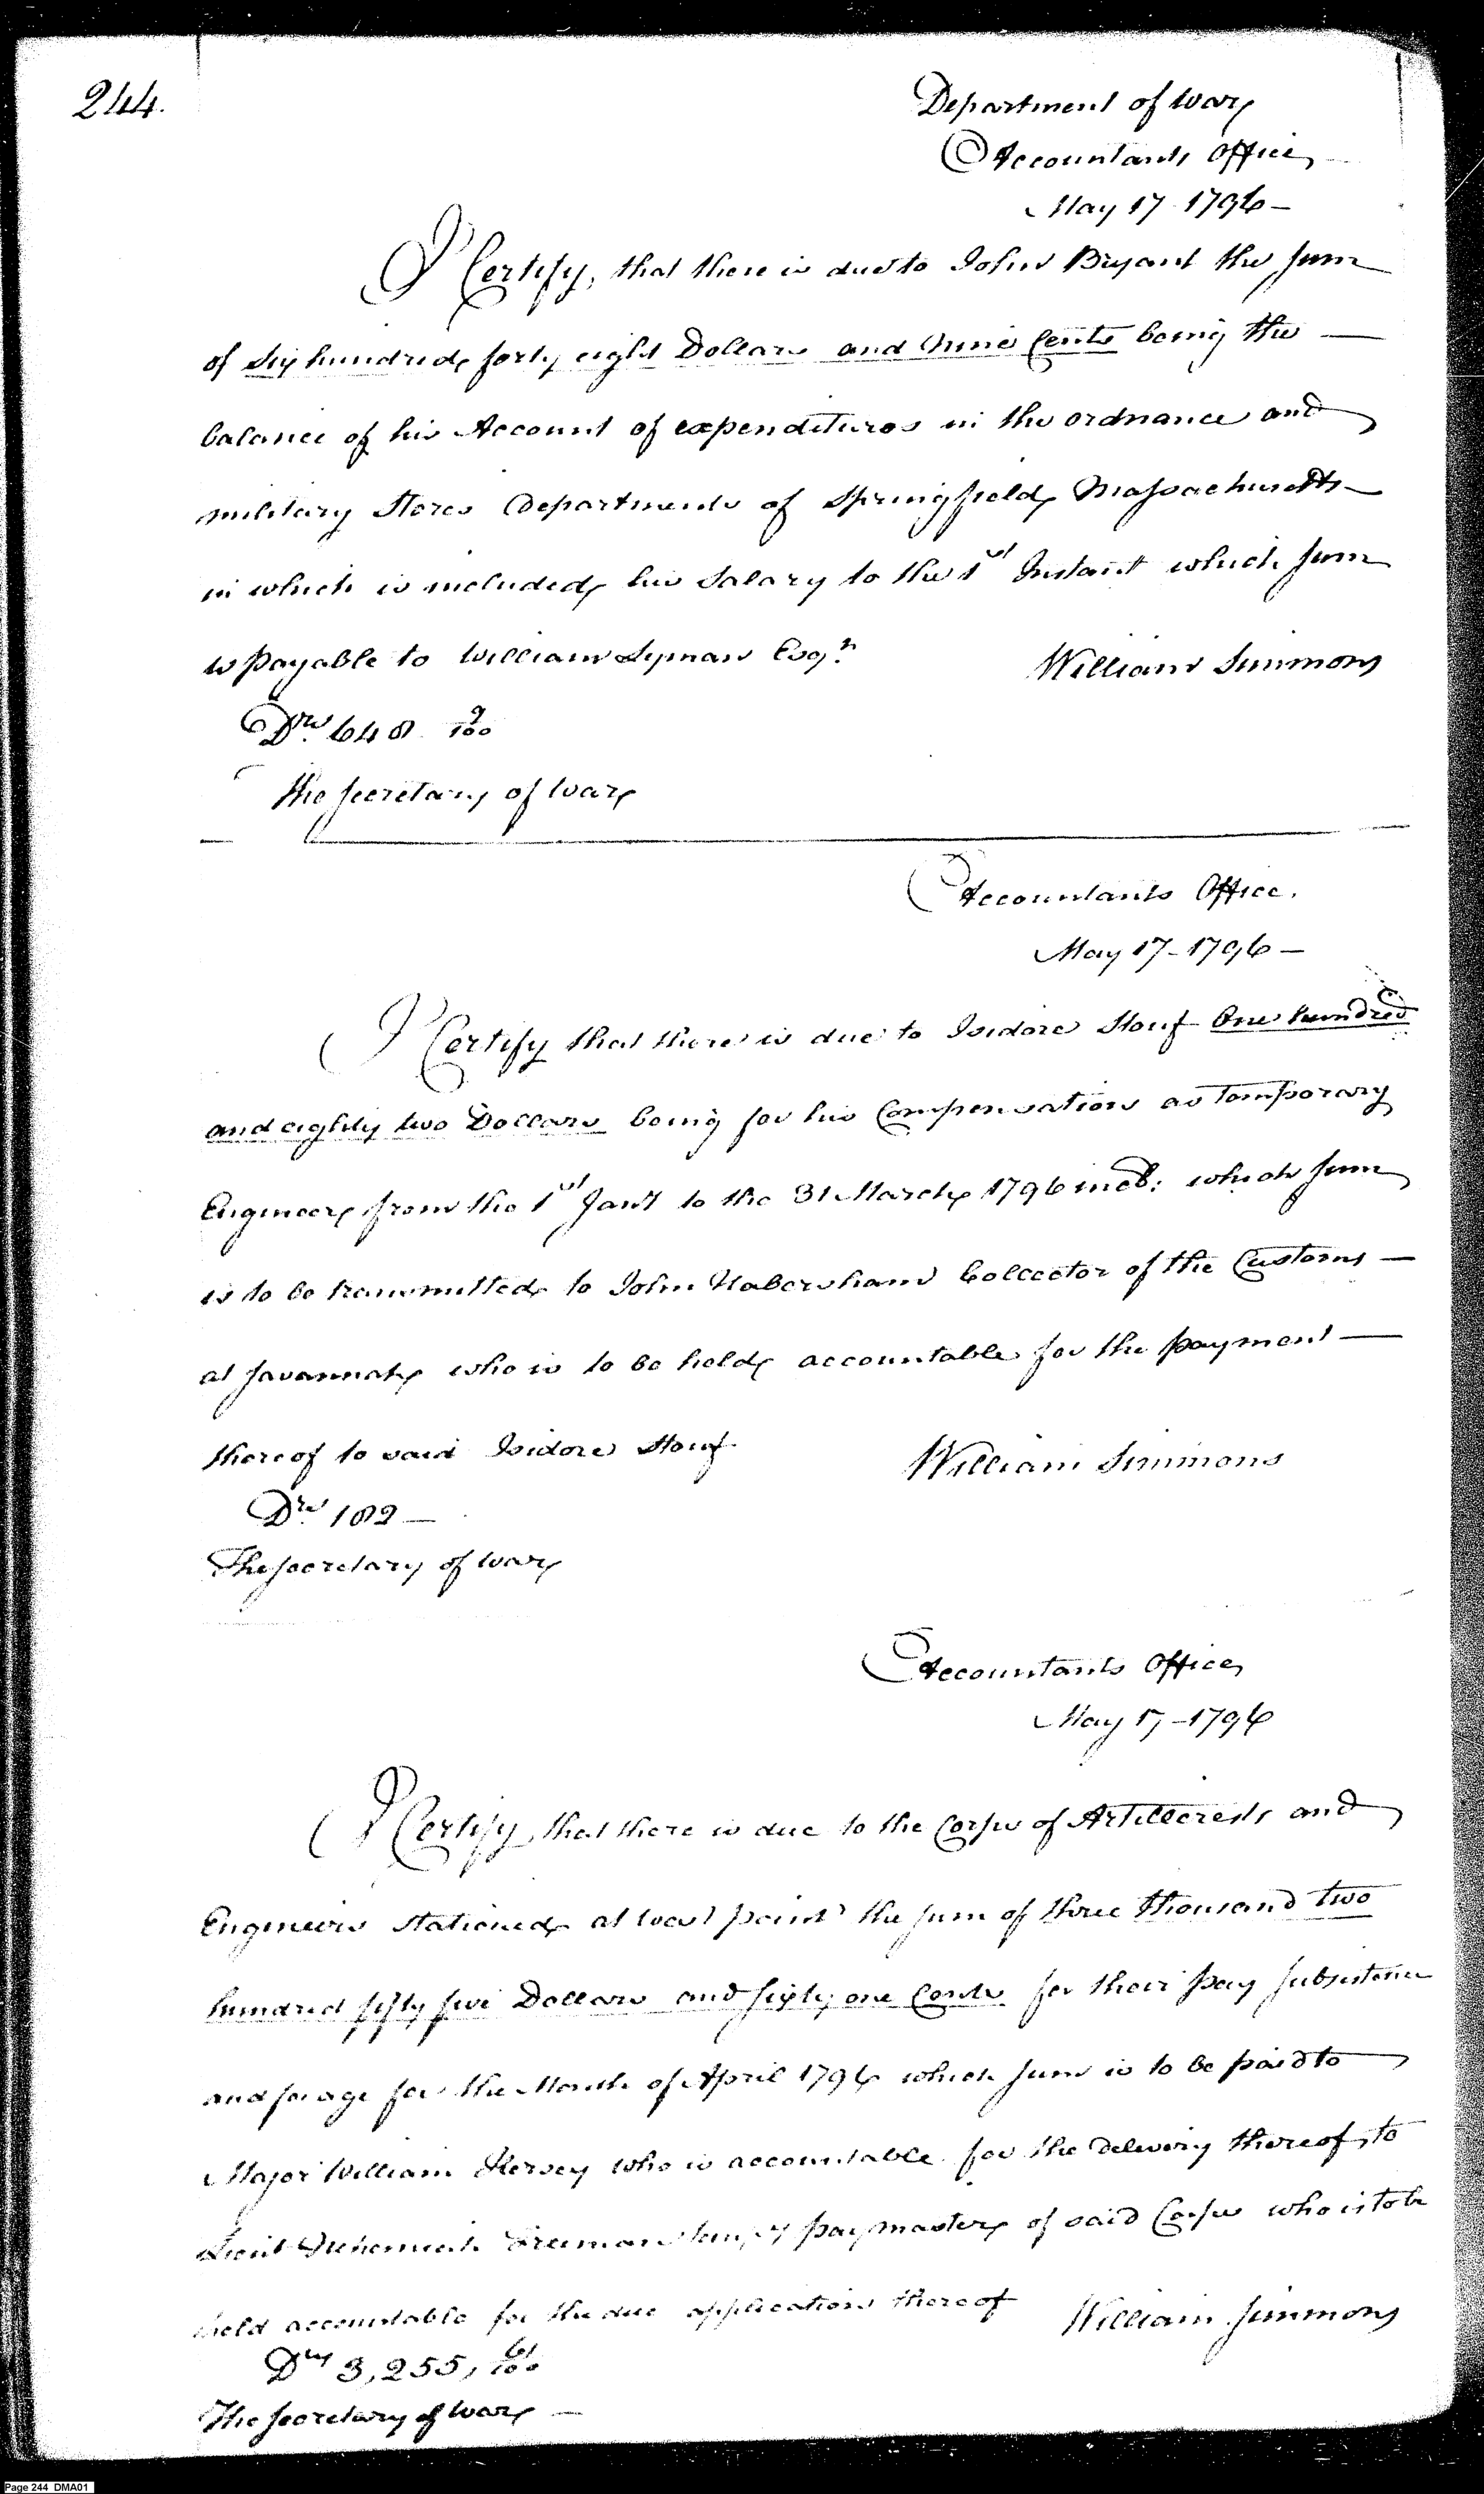 244.
Department of War
Accountants Office
May 17 1796 —
I Certify, that there is due to John Bryant the sum
of Six hundred forty eight Dollars and Nine Cents being the —
balance of his Account of expenditures in the ordnance and
military Stores Departments of Springfield Massachusetts —
in which is included his Salary to the 1st Instant which sum
is payable to William Lyman Esqr.
William Simmons
Drs. 648 9/100
The Secretary of War
Accountants Office.
May 17 - 1796 —
I Certify that there is due to Isidore Stouf One hundred
and eighty two Dollars being for his Compensation as Temporary
Engineer from the 1st Jany to the 31 March 1796 incl: which sum
is to be transmitted to John Habersham Collector of the Customs —
at Savannah who is to be held accountable for the payment —
thereof to said Isidore Stouf.
William Simmons
Drs. 182 —
The Secretary of War
Accountants Office
May 17 - 1796
I Certify, that there is due to the Corps of Artillerests and
Engineers stationed at West point the sum of three thousand two
hundred fifty five Dollars and sixty one Cents for their pay subsistence
and forage for the Month of April 1796 which sum is to be paid to
Major William Kersey who is accountable for the delivery thereof, to
Lieut Nehemiah Freeman paymaster of said Corps who is to be
held accountable for the due application thereof
William Simmons
Drs 3,255, 61/100
The Secretary of War —
Page 244 DMA01